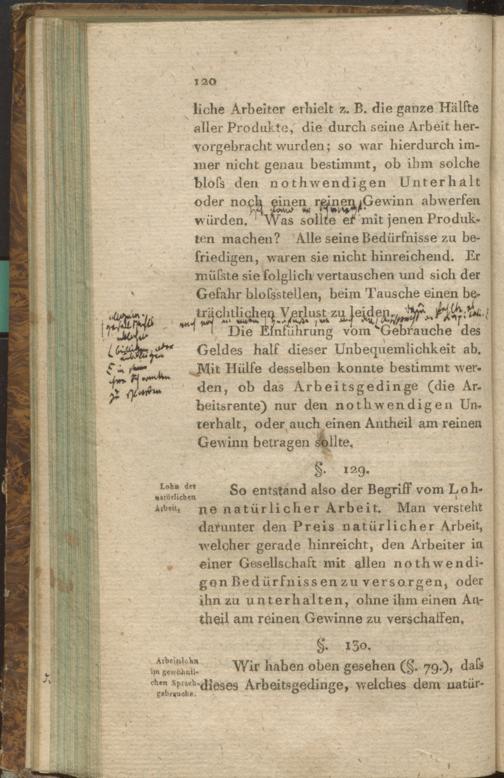 120
liche Arbeiter erhielt z. B. die ganze Hälfte
aller Produkte, die durch seine Arbeit her-
vorgebracht wurden; so war hierdurch im-
mer nicht genau bestimmt, ob ihm solche
bloſs den nothwendigen Unterhalt
oder noch einen reinen Gewinn abwerfen
würden. Was sollte er mit jenen Produk-
ten machen? Alle seine Bedürfnisse zu be-
friedigen, waren sie nicht hinreichend. Er
müſste sie folglich vertauschen und sich der
Gefahr bloſsstellen, beim Tausche einen be-
trächtlichen Verlust zu leiden.
Die Einführung vom Gebrauche des
Geldes half dieser Unbequemlichkeit ab.
Mit Hülfe desselben konnte bestimmt wer-
den, ob das Arbeitsgedinge (die Ar-
beitsrente) nur den nothwendigen Un-
terhalt, oder auch einen Antheil am reinen
Gewinn betragen sollte.
§. 129.
Lohn der
natürlichen
Arbeit,
So entstand also der Begriff vom Loh-
ne natürlicher Arbeit. Man versteht
darunter den Preis natürlicher Arbeit,
welcher gerade hinreicht, den Arbeiter in
einer Gesellschaft mit allen nothwendi-
gen Bedürfnissen zu versorgen, oder
ihn zu unterhalten, ohne ihm einen An-
theil am reinen Gewinne zu verschaffen.
§. 130.
Arbeitslohn
im gewöhnli-
chen Sprach-
gebrauche.
Wir haben oben gesehen (§. 79.), daſs
dieses Arbeitsgedinge, welches dem natür-